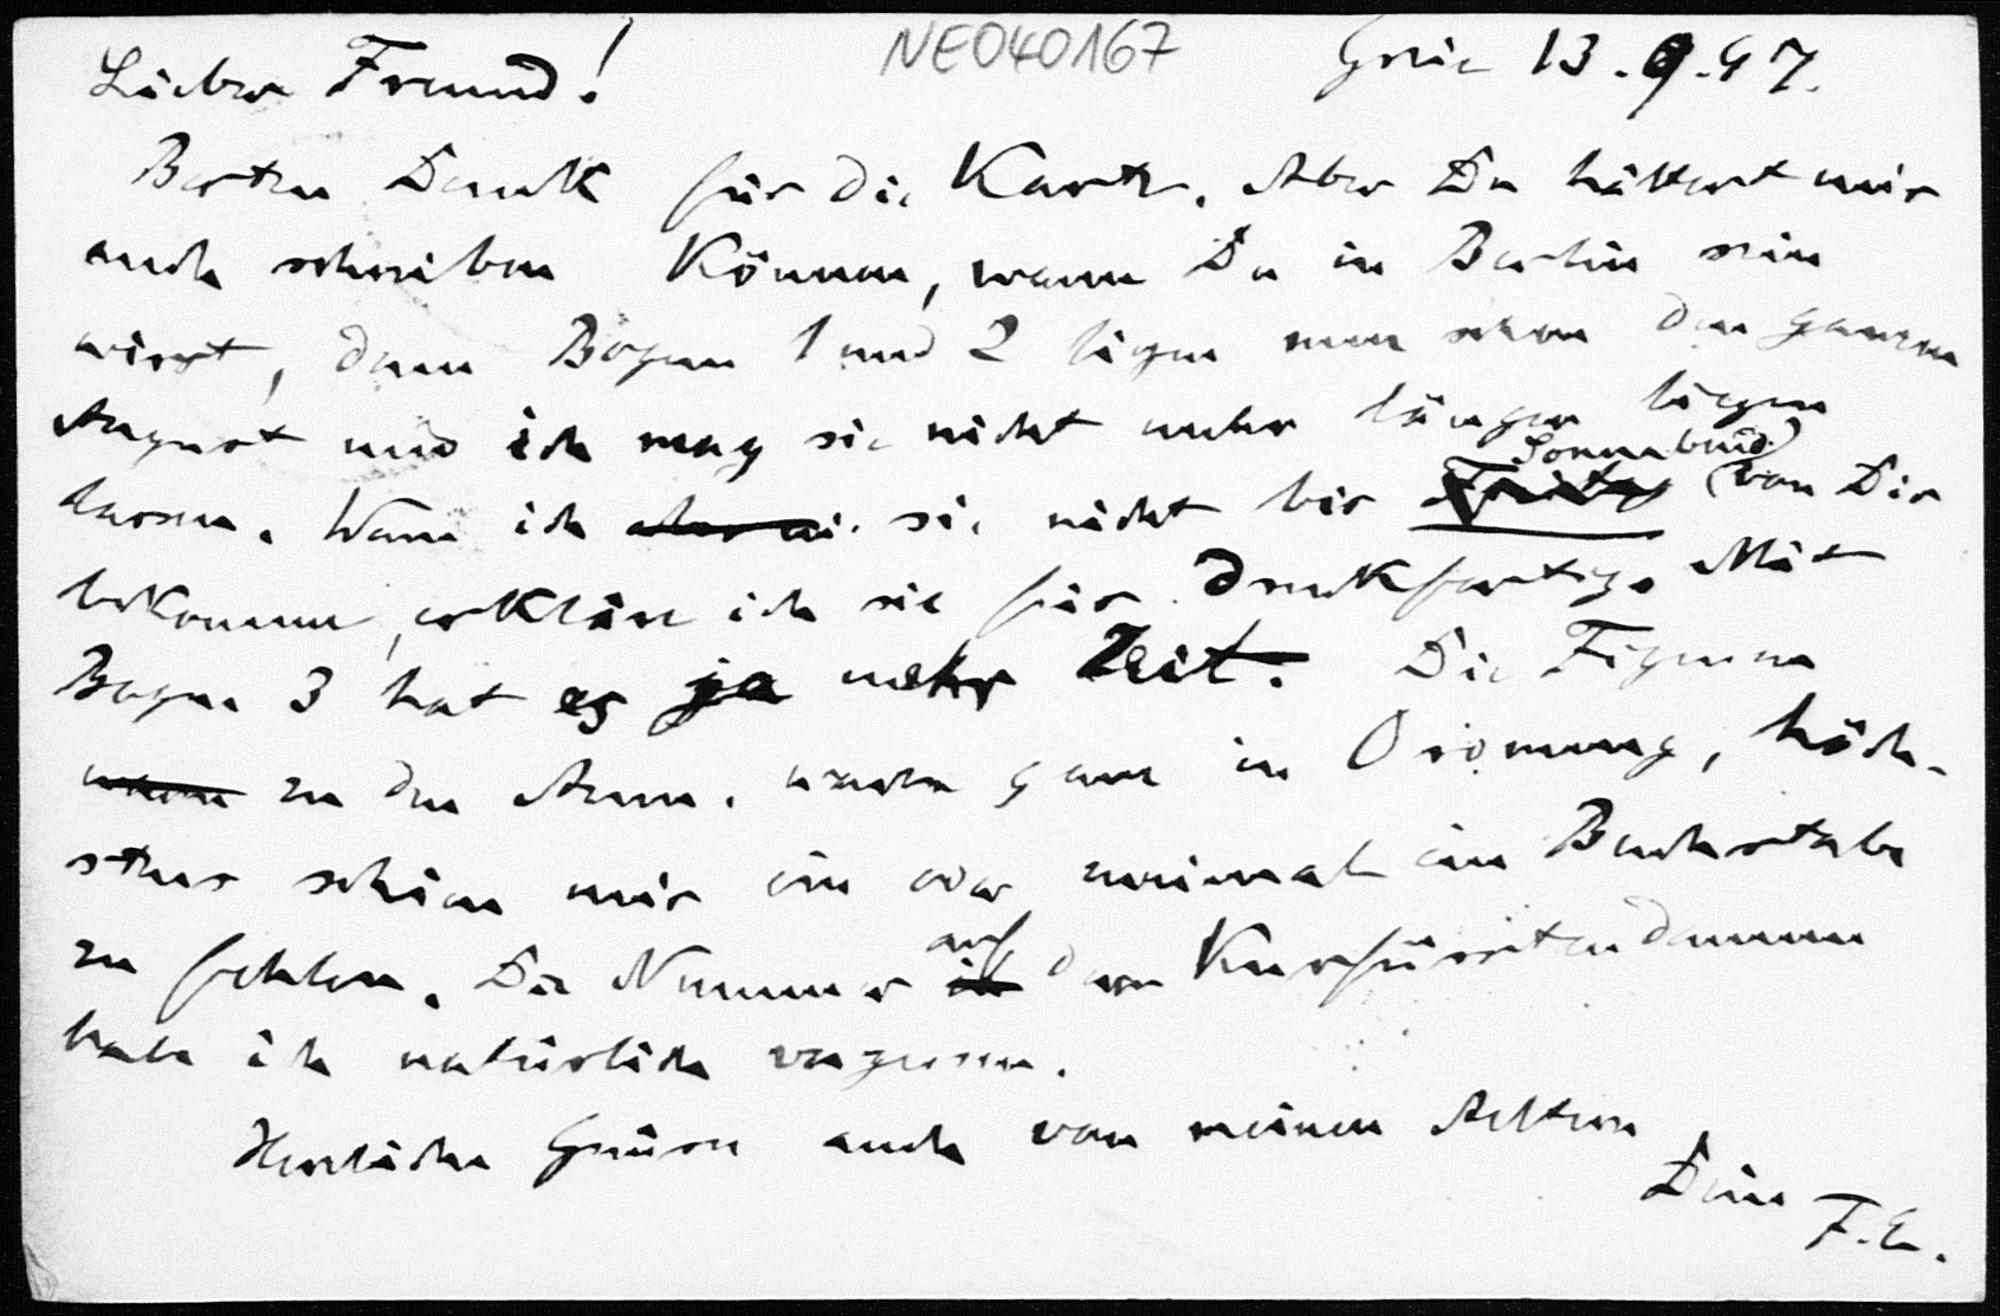 NE040167
Grüc 13.9.97.
Lieber Freund!
Besten Dank für die Karte. Aber Du hättest mir
auch schreiben können, wann Du in Berlin sein
wirst, denn Bogen 1 und 2 liegen nun schon den ganzen
August und ich mag sie nicht mehr länger liegen
lassen. Wenn ich sie nicht bis Freitag Sonnabend von Dir
bekomme, erkläre ich sie für druckfertig. Mit
Bogen 3 hat es ja mehr Zeit. Die Figuren
waren zu den Anm. waren ganz in Ordnung, höch-
stens schien mir ein oder zweimal ein Buchstabe
zu fehlen. Die Nummer auf dem Kurfürstendamm
habe ich natürlich vergessen.
Herzliche Grüsse auch von meinen Aeltern
Dein
F.E.